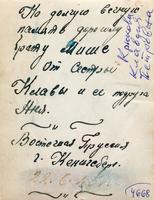 На долгую вечную
память дорогому
брату Мише
От Сестры
Клавы и ее подруга
Аня.
Восточная Пруссия
г. Кенигсберг.
22.
Клавдия
Петровна
4668